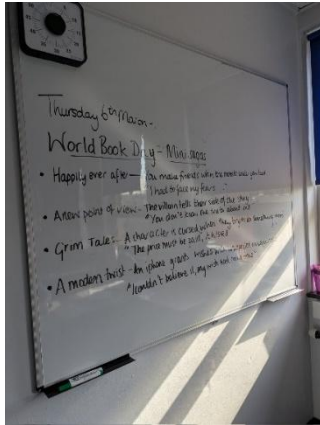 Thursday 6th March.
World Book Day - Mini sagas
• Happily ever after - You make friends with the
"I had to face my fears ..."
• A new point of view - The villain tells their side of the story
"You don't know the truth about me"
• Grim Tale: A character is cursed when they
"The price must be paid, it
• A modern twist - An iphone grants wishes
"I couldn't believe it, my wish had